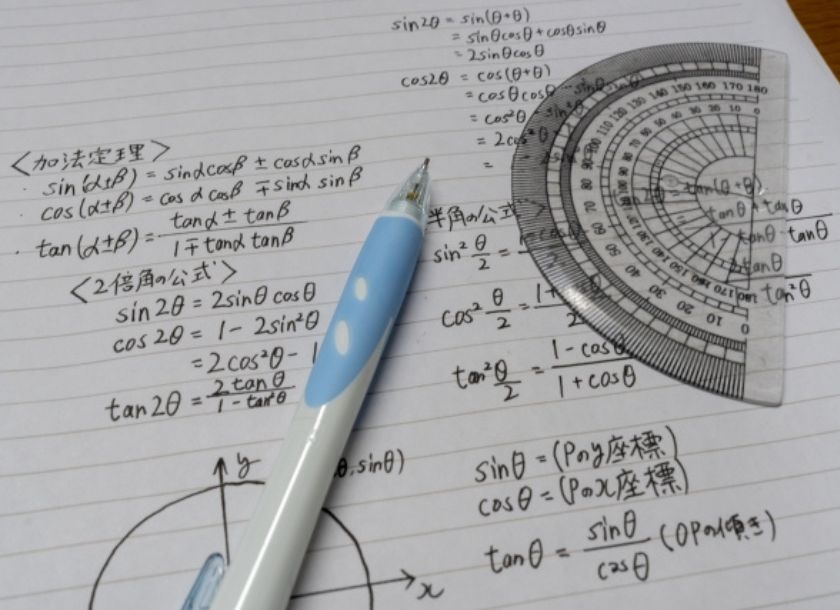 sin2θ = sin(θ+θ)
= sinθcosθ + cosθsinθ
= 2sinθcosθ
cos2θ = cos(θ+θ)
= cosθcosθ - sinθ
= cos²θ - sin²θ
= 2cos²θ
=
<加法定理>
・sin(α±β) = sinαcosβ ± cosαsinβ
・cos(α±β) = cosαcosβ ∓ sinα sinβ
・tan(α±β) = tanα ± tanβ / 1 ∓ tanα tanβ
<2倍角の公式>
sin2θ = 2sinθcosθ
cos2θ = 1 - 2sin²θ
= 2cos²θ - 1
tan2θ = 2tanθ / 1 - tan²θ
半角の公式>
sin² θ/2 = 1 - cosθ
cos² θ/2 = 1 + / 2
tan² θ/2 = 1 - cosθ / 1 + cosθ
= tan(θ+θ)
tanθ + tanθ
tanθ・tanθ
2tanθ
tan²θ
180 170 160 150 140 130 120 110 100 90 80 70 60 50 40 30 20 10 0
y
θ, sinθ)
x
sinθ = (Pのy座標)
cosθ = (Pのx座標)
tanθ = sinθ / cosθ (OPの傾き)